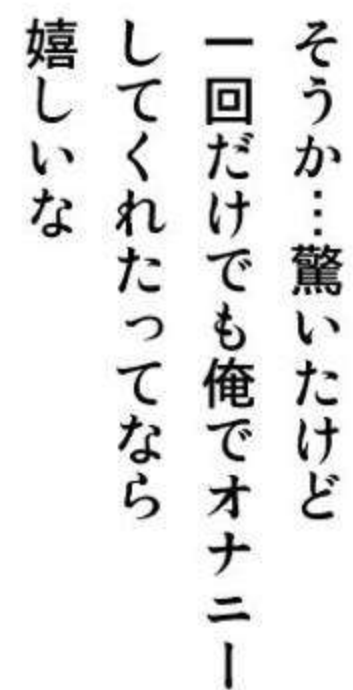 そうか…驚いたけど
一回だけでも俺でオナニー
してくれたってなら
嬉しいな